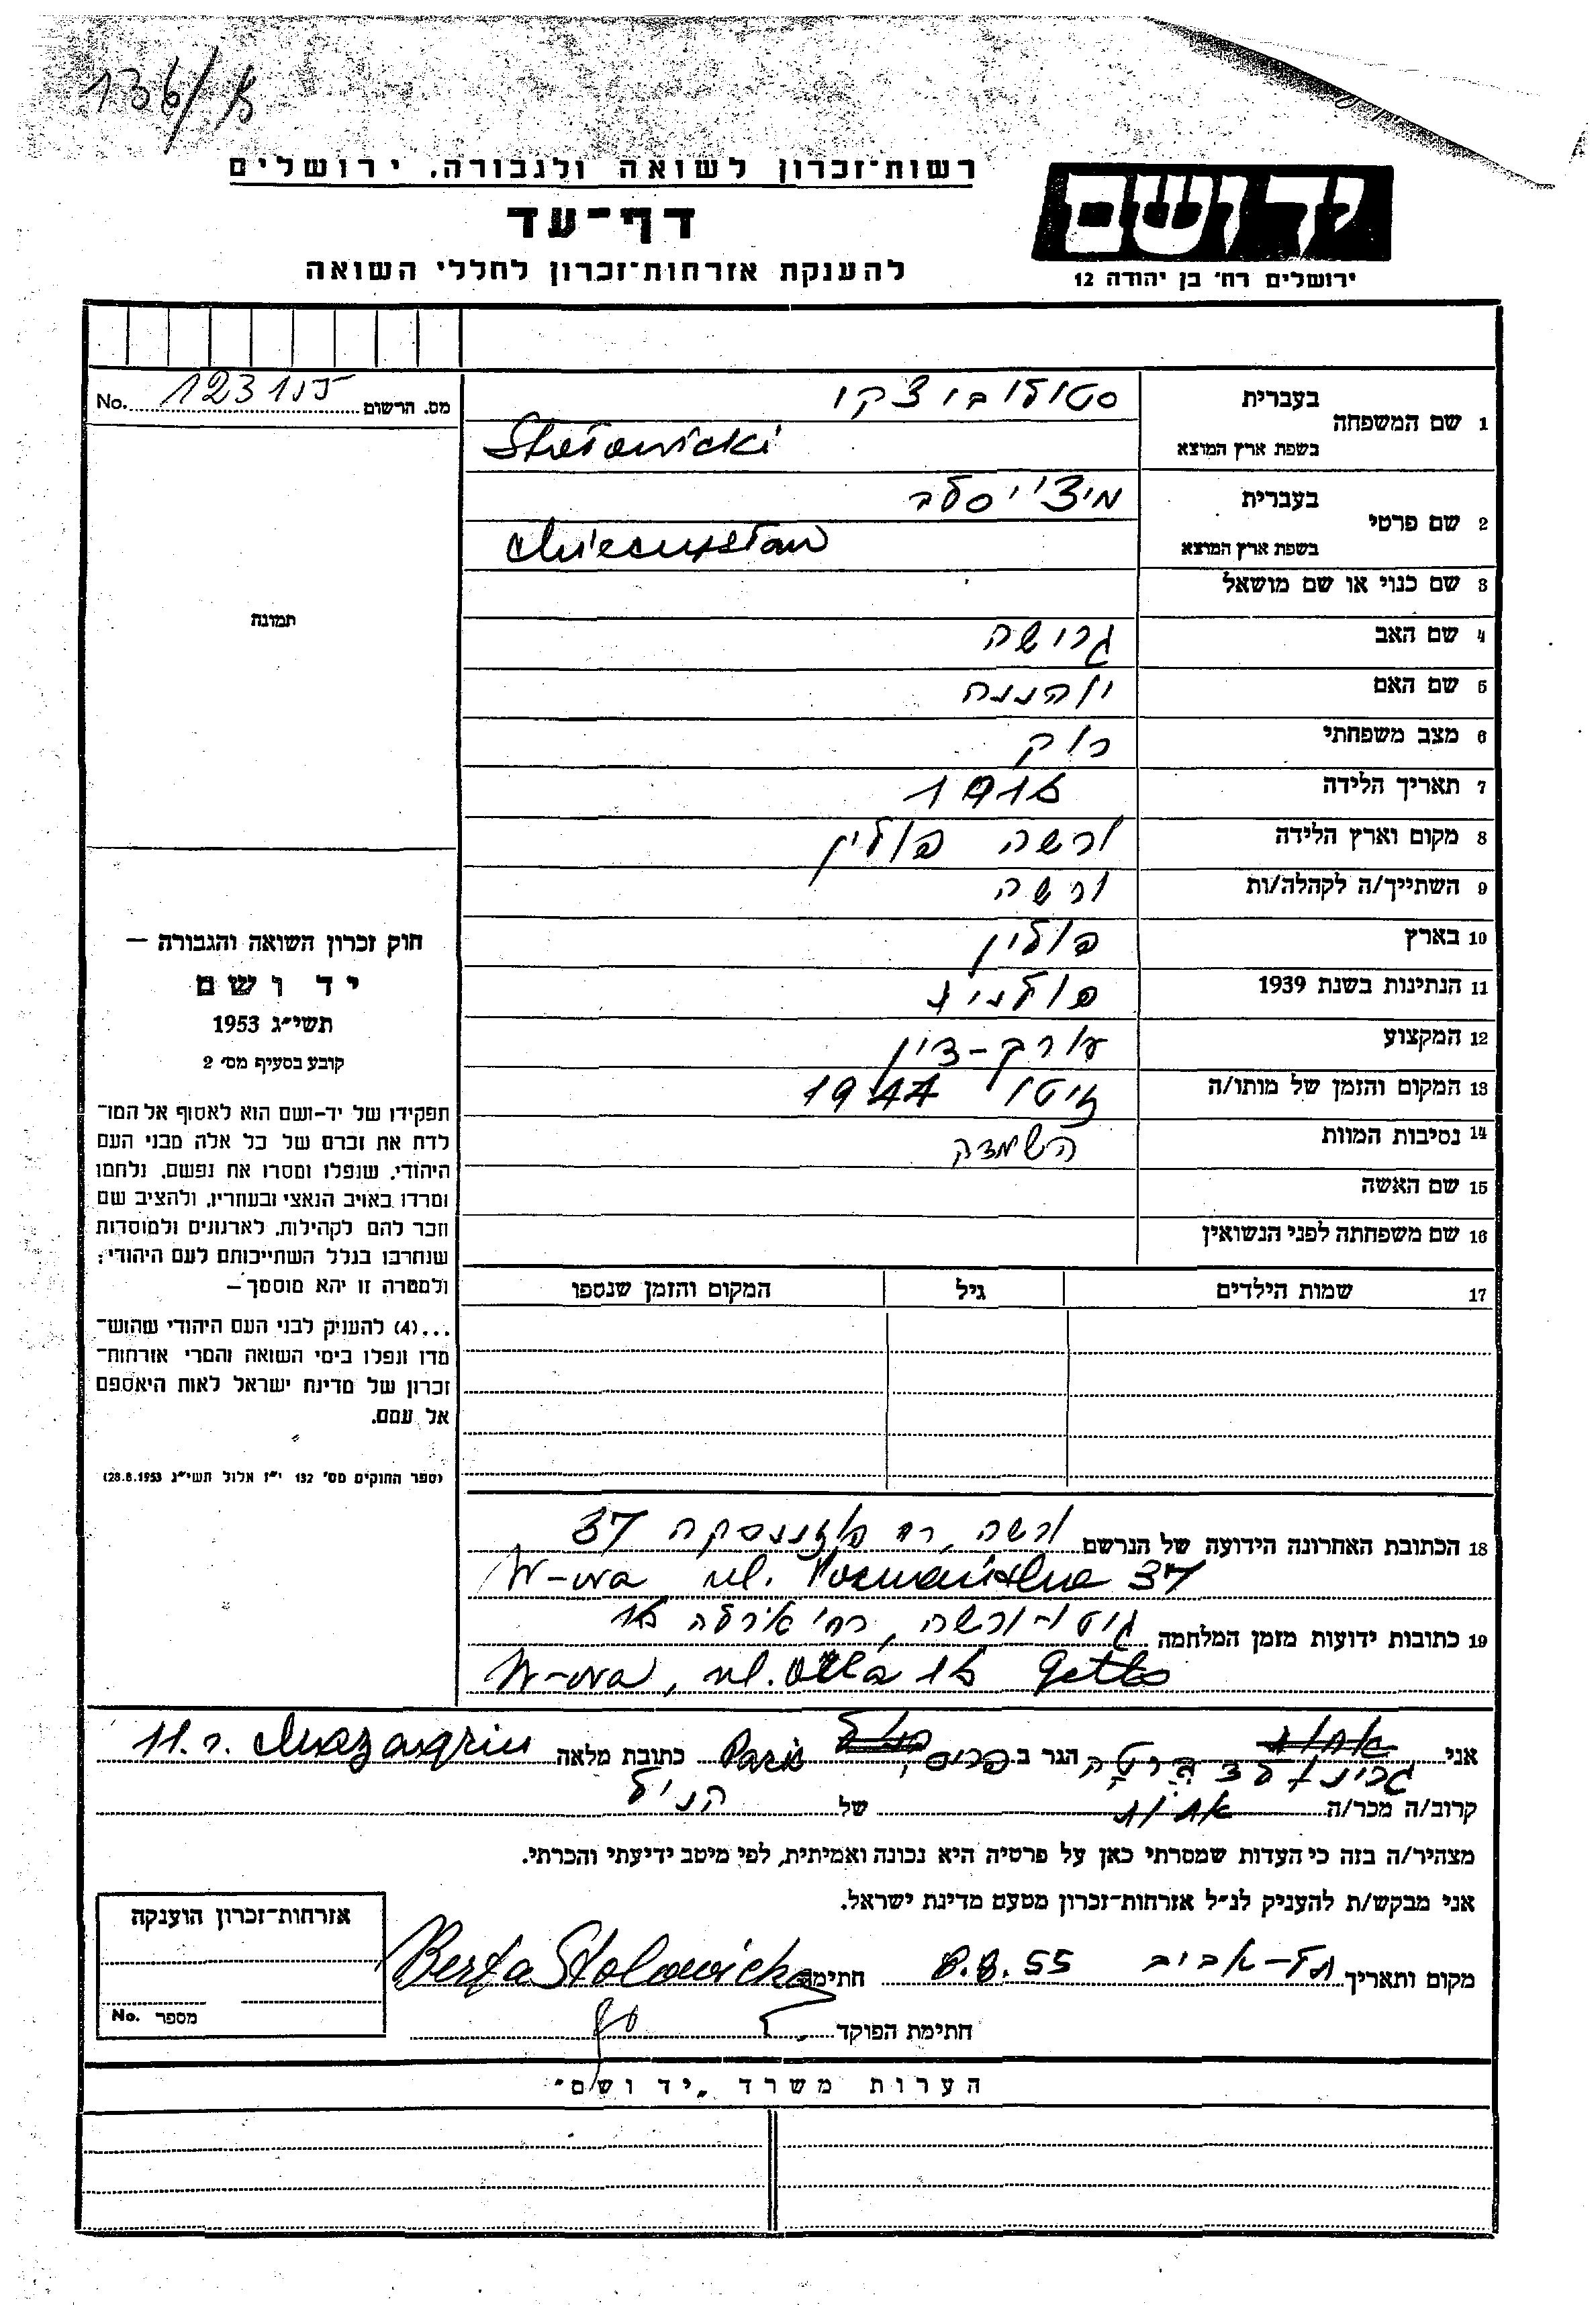 136/א
רשות־זכרון לשואה ולגבורה. ירושלים
דף־עד
להענקת אזרחות־זכרון לחללי השואה
יד ושם
ירושלים רח' בן יהודה 12
No. 123 מס. הרשום
1 שם המשפחה
בעברית סטולוביצקי
בשפת ארץ המוצא Stołowicki
2 שם פרטי
בעברית מיצ'יסלב
בשפת ארץ המוצא Mieczysław
3 שם כנוי או שם מושאל
4 שם האב גרושה
5 שם האם יוהננה
6 מצב משפחתי רוק
7 תאריך הלידה
8 מקום וארץ הלידה ורשה פולין
9 השתייך/ה לקהלה/ות ורשה
10 בארץ פולין
11 הנתינות בשנת 1939 פולנית
12 המקצוע עורך-דין
13 המקום והזמן של מותו/ה גיטו 1944
14 נסיבות המוות השמדה
15 שם האשה
16 שם משפחתה לפני הנשואין
17 שמות הילדים גיל המקום והזמן שנספו
תמונה
חוק זכרון השואה והגבורה —
יד ושם
תשי"ג 1953
קובע בסעיף מס' 2
תפקידו של יד-ושם הוא לאסוף אל המו־
לדת את זכרם של כל אלה מבני העם
היהודי, שנפלו ומסרו את נפשם, נלחמו
ומרדו באויב הנאצי ובעוזריו, ולהציב שם
וזכר להם לקהילות, לארגונים ולמוסדות
שנחרבו בגלל השתייכותם לעם היהודי;
ולמטרה זו יהא מוסמך —
...(4) להעניק לבני העם היהודי שהוש־
מדו ונפלו בימי השואה והמרי אזרחות־
זכרון של מדינת ישראל לאות היאספם
אל עמם.
(ספר החוקים מס' 132 י"ז אלול תשי"ג 28.8.1953)
18 הכתובת האחרונה הידועה של הנרשם ורשה, רח' פוזננסקה 37
W-wa ul. Poznańska 37
19 כתובות ידועות מזמן המלחמה גיטו-ורשה, רח'
W-wa, ul. Getto
אני ברטה הגר ב פריס, Paris כתובת מלאה 11. r. Mazagrin
קרוב/ה מכר/ה אחות של הנ"ל
מצהיר/ה בזה כי העדות שמסרתי כאן על פרטיה היא נכונה ואמיתית, לפי מיטב ידיעתי והכרתי.
אני מבקש/ת להעניק לנ"ל אזרחות־זכרון מטעם מדינת ישראל.
מקום ותאריך תל-אביב 8.8.55 חתימה Berta Stolowicka
חתימת הפוקד
אזרחות־זכרון הוענקה
מספר No.
הערות משרד „יד ושם"